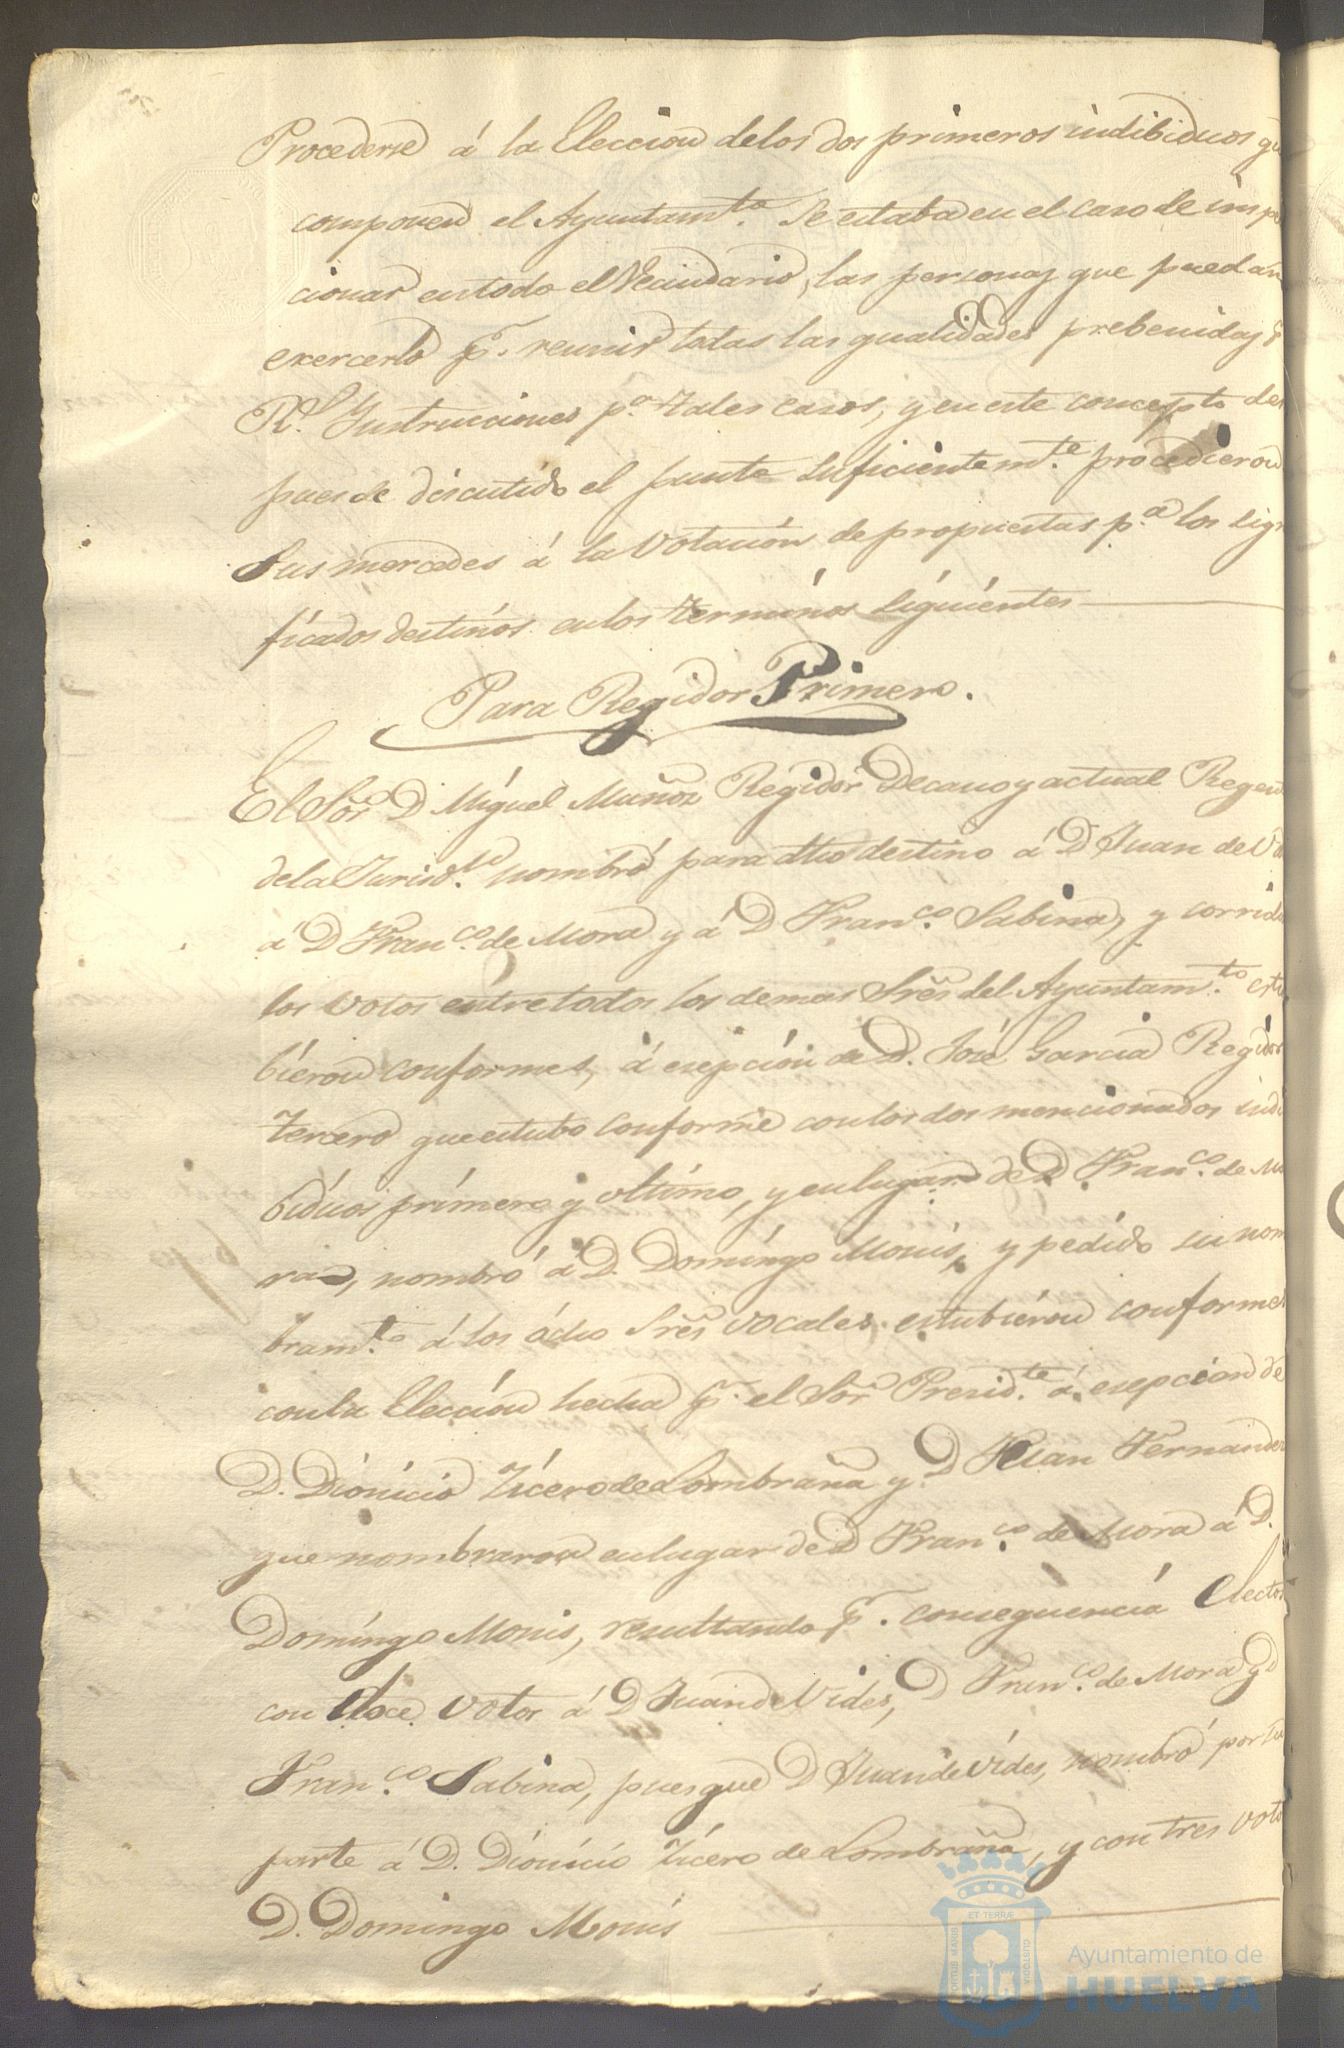 Procederse á la Eleccion delos dos primeros indibiduos qu
componen el Ayuntam.to Se estaba en el caso de inspe
cionar en todo el Vecindario, las personas que puedan
exercerlo p.r reunir todas las qualidades prebenidas
R.s Ynstrucciones p.a tales casos, y en este concepto des
pues de discutido el punto suficientem.te procedieron
Sus mercedes á la Votación de propuestas p.a los sign
ficados destinos en los términos siguientes
Para Regidor Primero.
El Sor. D Miguel Muñoz Regidor Decano y actual Regen
dela Jurisd. nombró para dho destino á D Juan de Vi
á D Fran.co de Mora y á D Fran.co Sabina, y corrido
los Votos entre todos los demas Sres del Ayuntam.to estu
bieron conformes, á esepción de D. José Garcia Regidor
tercero que estubo conforme con los dos mencionados indi
biduos primero y ultimo, y en lugar de D Fran.co de Mo
ra, nombró á D. Domingo Monis, y pedido su nom
bram.to á los ócho Sres vocales estubieron conformes
con la Elección hecha p.r el Sor. Presid.te á esepcion de
D. Dionicio Ticero de Lombraña y D Juan Fernandez
que nombraron en lugar de D Fran.co de Mora á D.
Domingo Monis, resultando p.r conseguencia Electos
con doce votos á D Juan de Vides, D Fran.co de Mora y D
Fran.co Sabina, pues que D Juan de Vides, nombró por su
parte á D. Dionicio Ticero de Lombraña, y con tres voto
D. Domingo Monis
PORTUS MARIS ET TERRÆ CUSTODIA
Ayuntamiento de
HUELVA